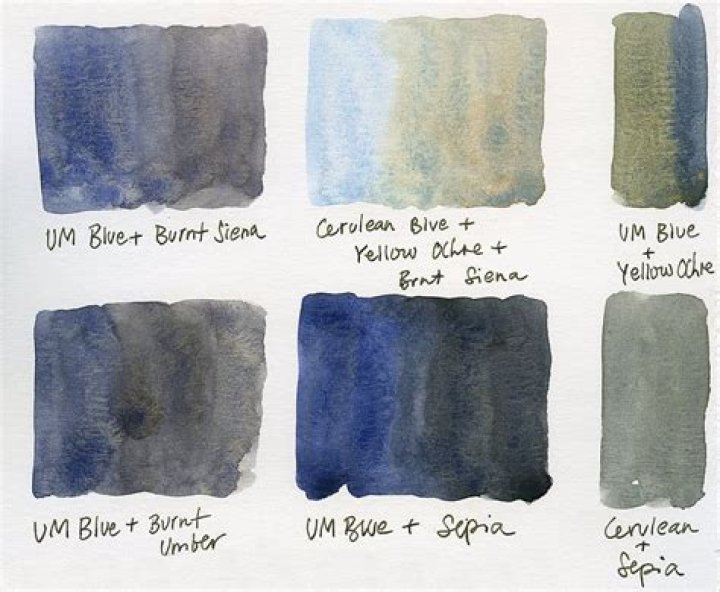 UM Blue + Burnt Siena
Cerulean Blue +
Yellow Ochre +
Brnt Siena
UM Blue
+
Yellow Ochre
UM Blue + Burnt
Umber
UM Blue + Sepia
Cerulean
+
Sepia